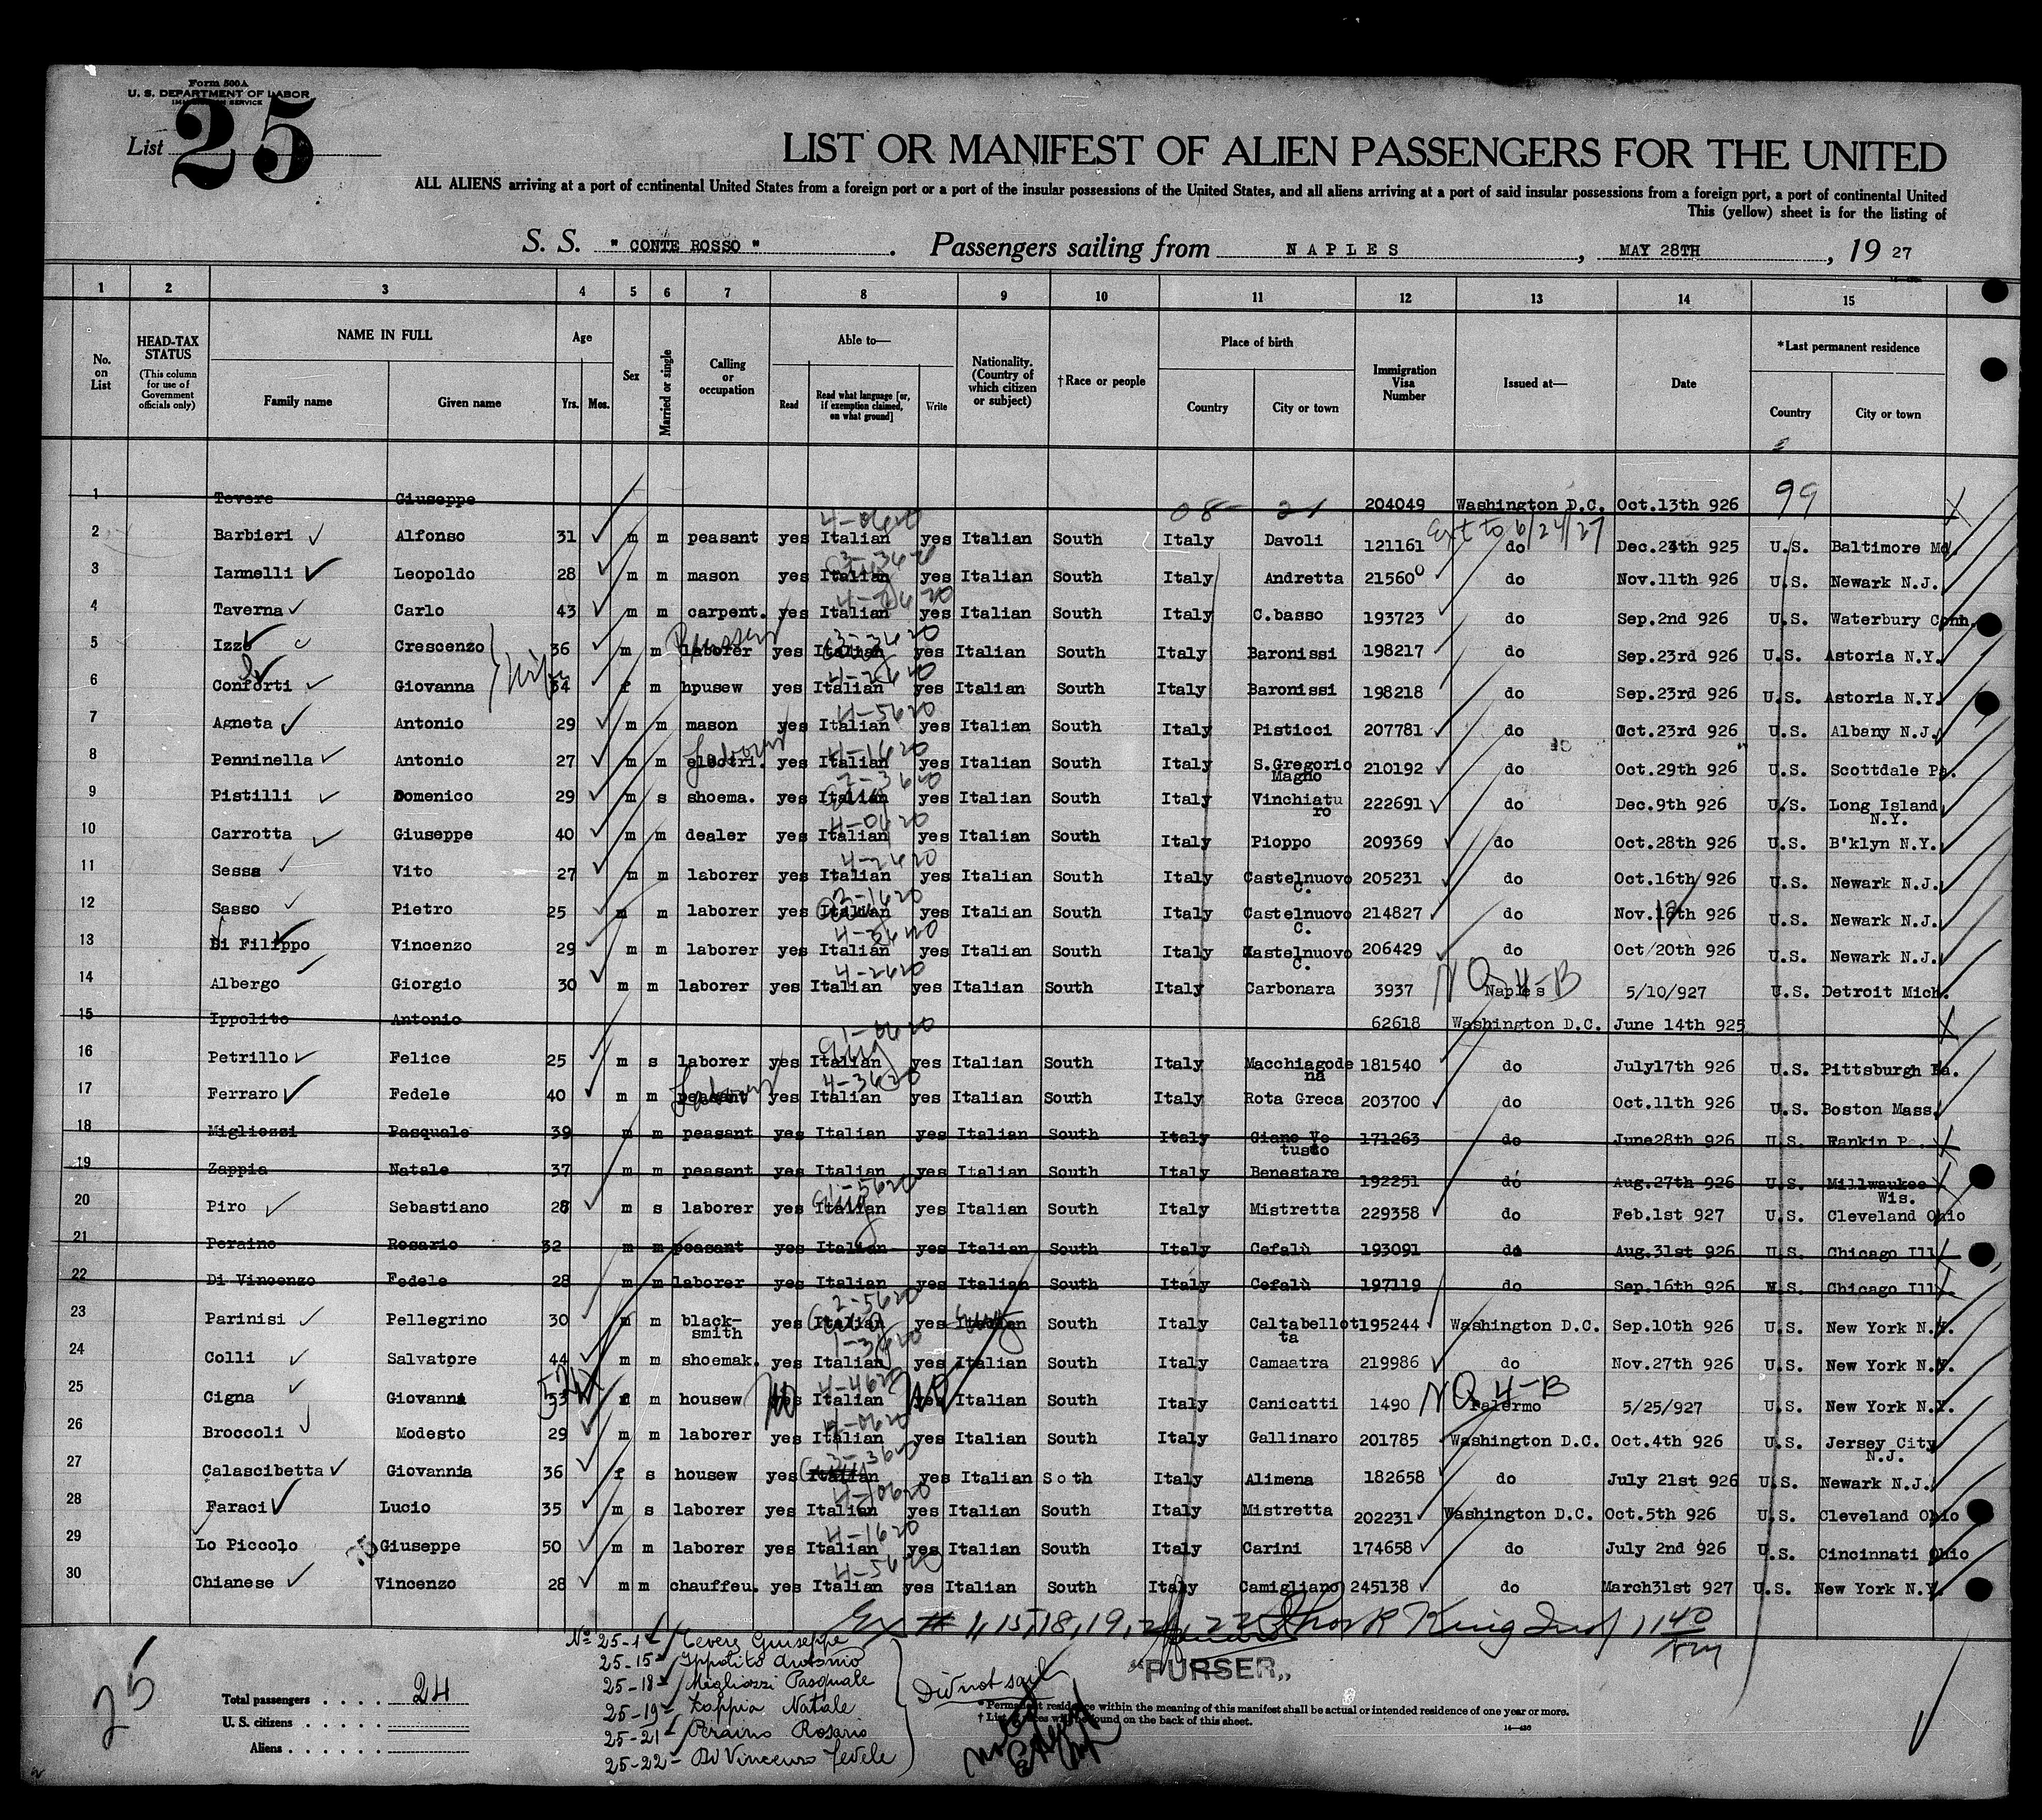 Form 500A
U. S. DEPARTMENT OF LABOR
IMMIGRATION SERVICE
List 25
LIST OR MANIFEST OF ALIEN PASSENGERS FOR THE UNITED
ALL ALIENS arriving at a port of continental United States from a foreign port or a port of the insular possessions of the United States, and all aliens arriving at a port of said insular possessions from a foreign port, a port of continental United
This (yellow) sheet is for the listing of
S. S. " CONTE ROSSO " . Passengers sailing from NAPLES , MAY 28TH , 19 27
1 2 3 4 5 6 7 8 9 10 11 12 13 14 15
No. on List
HEAD-TAX STATUS (This column for use of Government officials only)
NAME IN FULL Family name Given name
Age Yrs. Mos.
Sex
Married or single
Calling or occupation
Able to— Read Read what language [or, if exemption claimed, on what ground] Write
Nationality. (Country of which citizen or subject)
† Race or people
Place of birth Country City or town
Immigration Visa Number
Issued at—
Date
*Last permanent residence Country City or town
1 Tevere Giuseppe 08- 21 204049 Washington D.C. Oct.13th 926 99
4-0620 Ext to 6/24/27
2 Barbieri Alfonso 31 m m peasant yes Italian yes Italian South Italy Davoli 121161 do Dec.24th 925 U.S. Baltimore Md.
3-3620
3 Iannelli Leopoldo 28 m m mason yes Italian yes Italian South Italy Andretta 215600 do Nov.11th 926 U.S. Newark N.J.
4 Taverna Carlo 43 m m carpent. yes Italian yes Italian South Italy C.basso 193723 do Sep.2nd 926 U.S. Waterbury Conn.
3-3620
5 Izzo Crescenzo 36 m m laborer yes Italian yes Italian South Italy Baronissi 198217 do Sep.23rd 926 U.S. Astoria N.Y.
wife 4-2620
6 Conforti Giovanna 34 f m hpusew yes Italian yes Italian South Italy Baronissi 198218 do Sep.23rd 926 U.S. Astoria N.Y.
4-5620
7 Agneta Antonio 29 m m mason yes Italian yes Italian South Italy Pisticci 207781 do Oct.23rd 926 U.S. Albany N.J.
Laborer 4-1620
8 Penninella Antonio 27 m m electri. yes Italian yes Italian South Italy S.Gregorio Magno 210192 do Oct.29th 926 U.S. Scottdale Pa.
2-3620
9 Pistilli Domenico 29 m s shoema. yes Italian yes Italian South Italy Vinchiatu ro 222691 do Dec.9th 926 U.S. Long Island N.Y.
4-0620
10 Carrotta Giuseppe 40 m m dealer yes Italian yes Italian South Italy Pioppo 209369 do Oct.28th 926 U.S. B'klyn N.Y.
4-2620
11 Sessa Vito 27 m m laborer yes Italian yes Italian South Italy Castelnuovo C. 205231 do Oct.16th 926 U.S. Newark N.J.
2-1620
12 Sasso Pietro 25 m m laborer yes Italian yes Italian South Italy Castelnuovo C. 214827 do Nov.16th 926 U.S. Newark N.J.
13 Di Filippo Vincenzo 29 m m laborer yes Italian yes Italian South Italy Mastelnuovo C. 206429 do Oct/20th 926 U.S. Newark N.J.
4-2620 NQ 4-B
14 Albergo Giorgio 30 m m laborer yes Italian yes Italian South Italy Carbonara 3937 Naples 5/10/927 U.S. Detroit Mich.
15 Ippolito Antonio 62618 Washington D.C. June 14th 925
1-0620
16 Petrillo Felice 25 m s laborer yes Italian yes Italian South Italy Macchiagode na 181540 do July17th 926 U.S. Pittsburgh Pa.
Laborer 4-3620
17 Ferraro Fedele 40 m m peasant yes Italian yes Italian South Italy Rota Greca 203700 do Oct.11th 926 U.S. Boston Mass.
18 Migliozzi Pasquale 39 m m peasant yes Italian yes Italian South Italy Giano Ve tusto 171263 do June28th 926 U.S. Rankin P .
19 Zappia Natale 37 m m peasant yes Italian yes Italian South Italy Benestare 192251 do Aug.27th 926 U.S. Millwaukee Wis.
1-5620
20 Piro Sebastiano 28 m s laborer yes Italian yes Italian South Italy Mistretta 229358 do Feb.1st 927 U.S. Cleveland Ohio
21 Peraino Rosario 32 m m peasant yes Italian yes Italian South Italy Cefalù 193091 do Aug.31st 926 U.S. Chicago Ill.
22 Di Vincenzo Fedele 28 m m laborer yes Italian yes Italian South Italy Cefalù 197119 do Sep.16th 926 U.S. Chicago Ill.
2-5620
23 Parinisi Pellegrino 30 m m black- smith yes Italian yes Italian South Italy Caltabellot ta 195244 Washington D.C. Sep.10th 926 U.S. New York N.Y.
1-3620
24 Colli Salvatore 44 m m shoemak. yes Italian yes Italian South Italy Camaatra 219986 do Nov.27th 926 U.S. New York N.Y.
no 4-4620 no NQ 4-B
25 Cigna Giovanna 53 f m housew yes Italian yes Italian South Italy Canicatti 1490 Palermo 5/25/927 U.S. New York N.Y.
4-0620
26 Broccoli Modesto 29 m m laborer yes Italian yes Italian South Italy Gallinaro 201785 Washington D.C. Oct.4th 926 U.S. Jersey City N.J.
27 Calascibetta Giovannia 36 f s housew yes Italian yes Italian So th Italy Alimena 182658 do July 21st 926 U.S. Newark N.J.
4-0620
28 Faraci Lucio 35 m s laborer yes Italian yes Italian South Italy Mistretta 202231 Washington D.C. Oct.5th 926 U.S. Cleveland Ohio
4-1620
29 Lo Piccolo Giuseppe 50 m m laborer yes Italian yes Italian South Italy Carini 174658 do July 2nd 926 U.S. Cincinnati Ohio
4-5620
30 Chianese Vincenzo 28 m m chauffeu. yes Italian yes Italian South Italy Camigliano 245138 do March31st 927 U.S. New York N.Y.
Ex # 1, 15, 18, 19, 21, 22
25
No 25-1 Tevere Giuseppe
25-15 Ippolito Antonio
25-18 Migliozzi Pasquale
25-19 Zappia Natale
25-21 Peraino Rosario
25-22 - Di Vincenzo Fedele
Did not sail
"PURSER"
Total passengers . . . . 24
U. S. citizens . . . . .
Aliens . . . . . .
* Permanent residence within the meaning of this manifest shall be actual or intended residence of one year or more.
† List of races will be found on the back of this sheet.
14—430